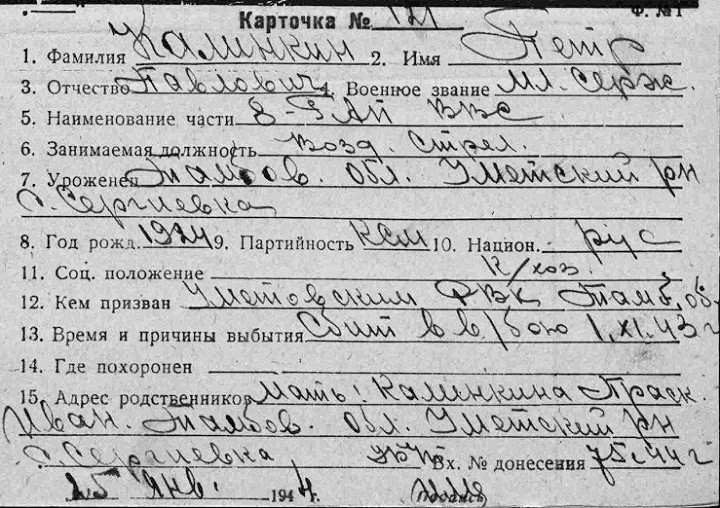 Карточка № 121
Ф. № 1
1. Фамилия Калинкин 2. Имя Петр
3. Отчество Павлович 4. Военное звание Мл. Серж.
5. Наименование части 8-ГАП ВВС
6. Занимаемая должность Возд. Стрел.
7. Уроженец Тамбов. обл. Уметский рн
с. Сергиевка
8. Год рожд. 1924 9. Партийность КСМ 10. Национ. рус
11. Соц. положение К/хоз.
12. Кем призван Уметовским РВК Тамб. об.
13. Время и причины выбытия Сбит в в/бою 1.XI.43 г
14. Где похоронен
15. Адрес родственников Мать: Калинкина Праск.
Иван. Тамбов. обл. Уметский рн
с. Сергиевка Вх. № донесения 75с.44 г
25 Янв. 1944 г. (подпись)